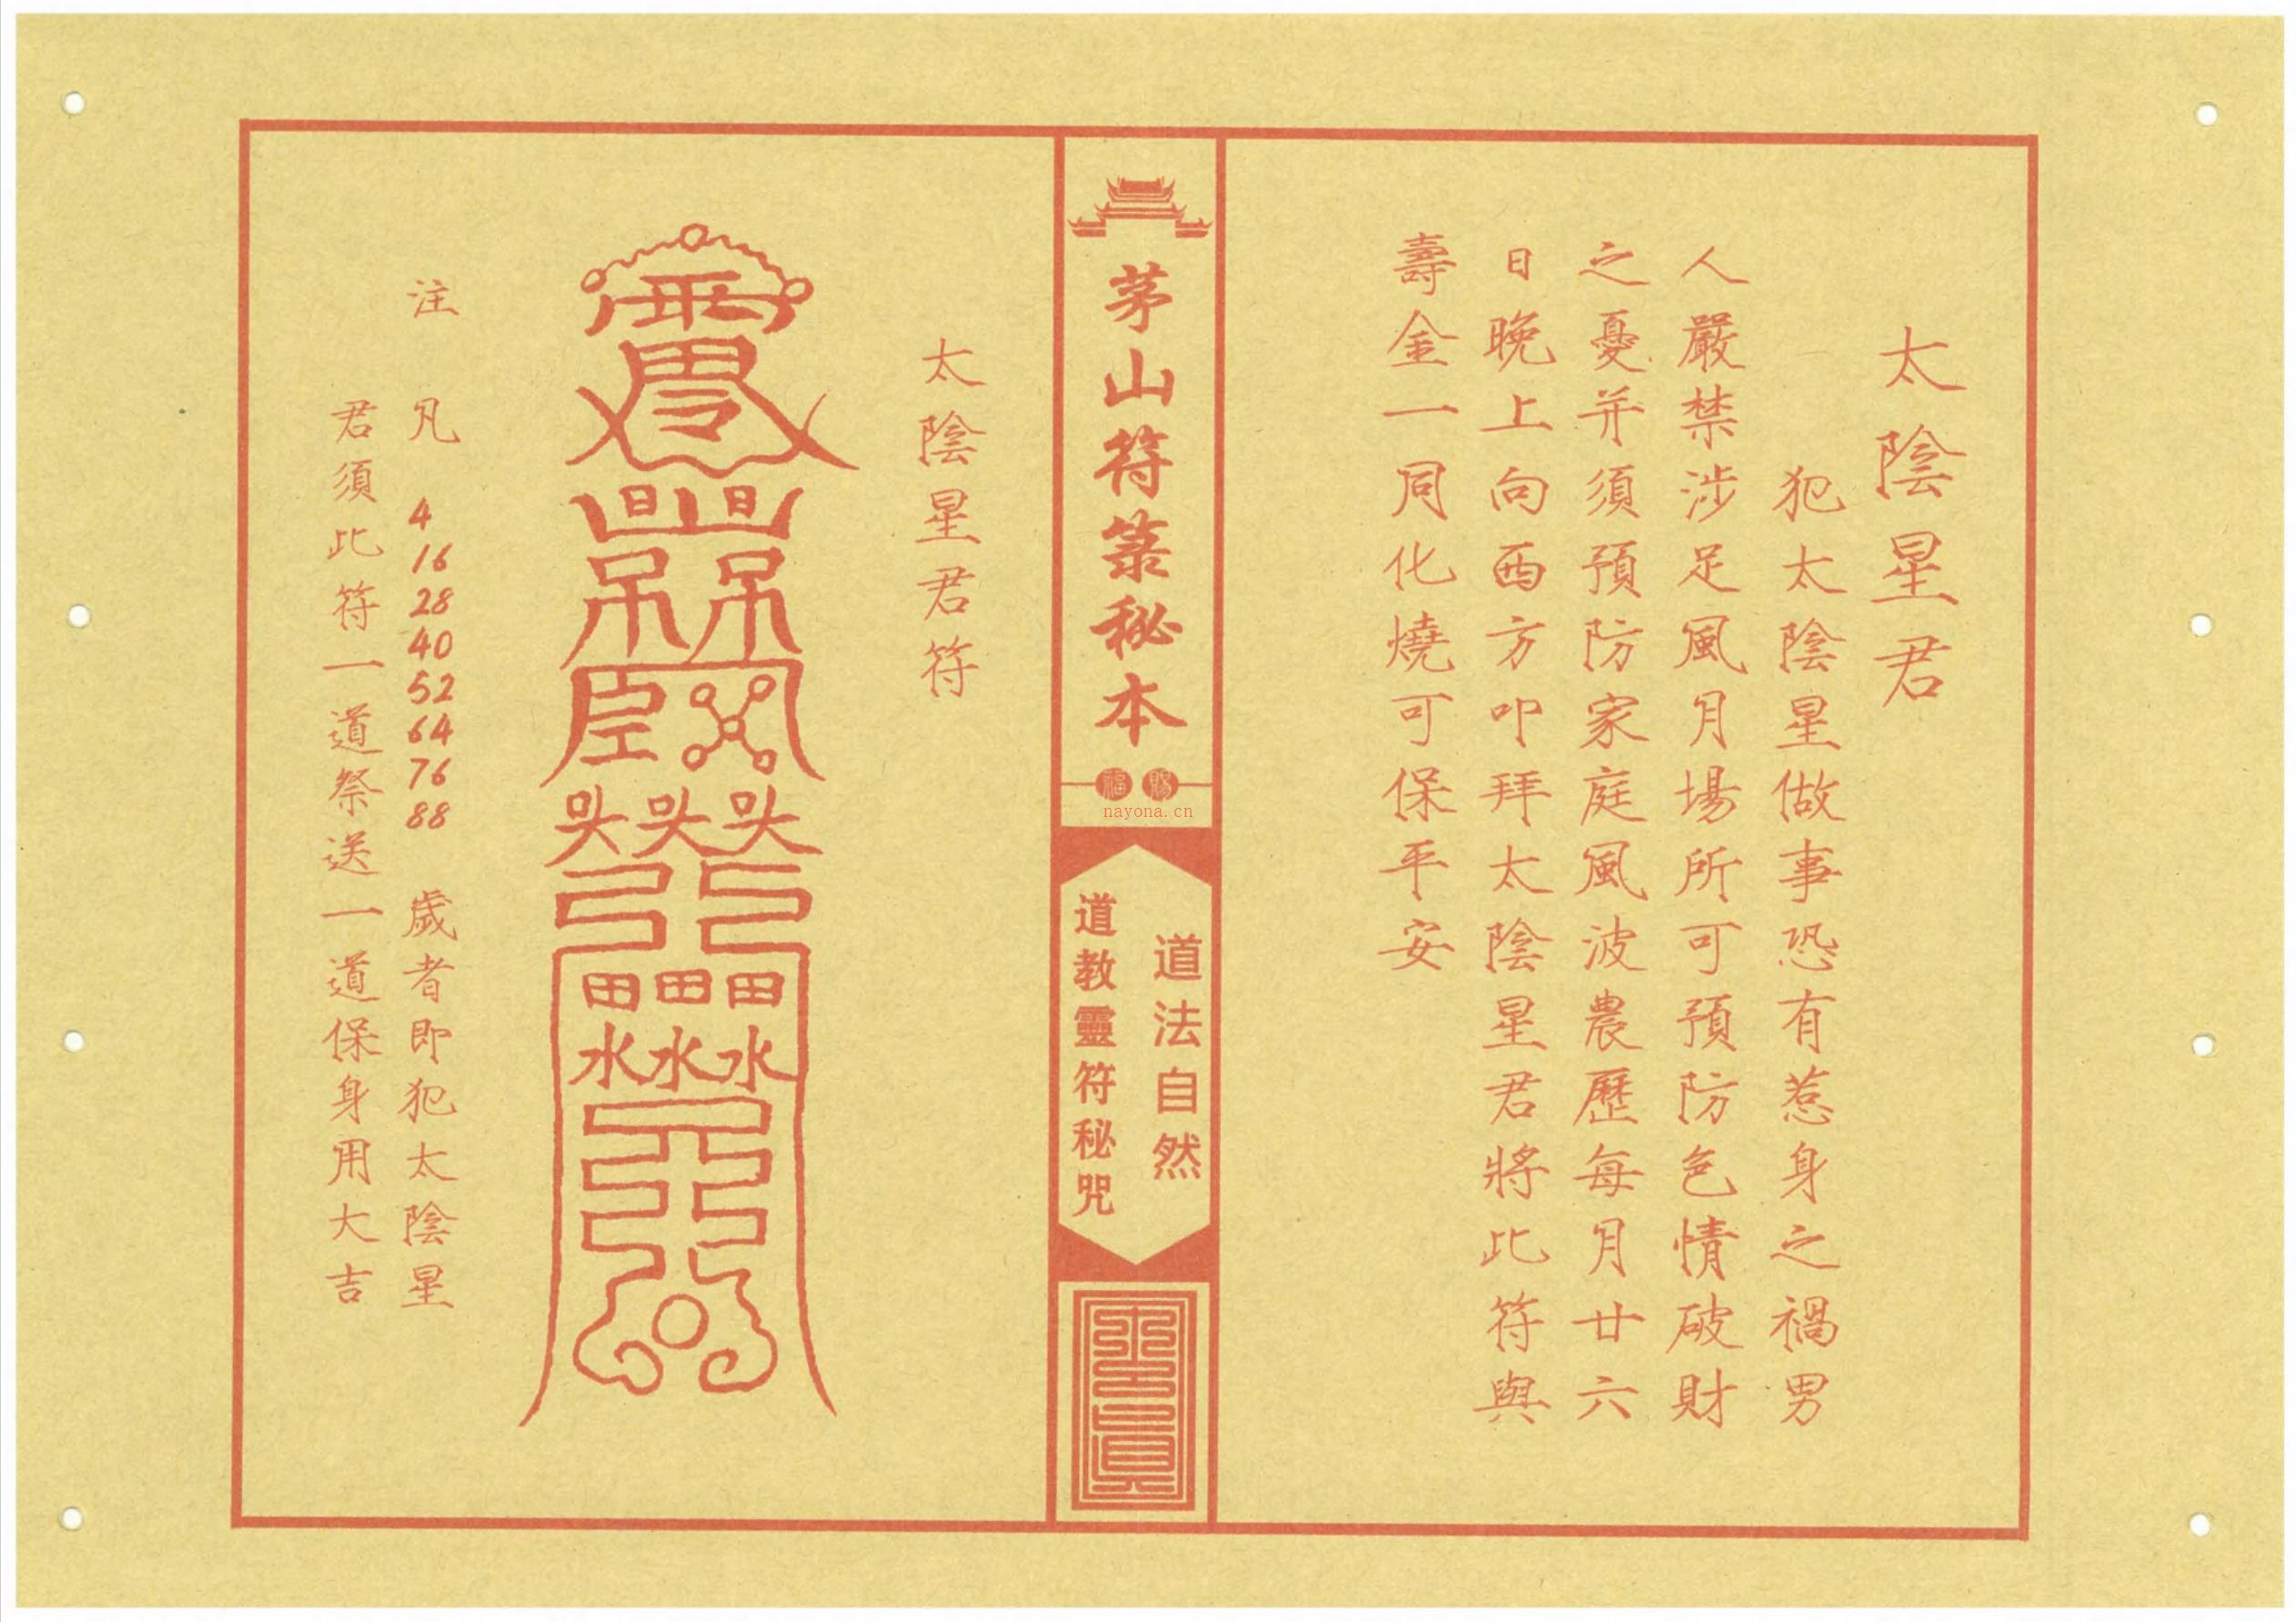 太陰星君
犯太陰星做事恐有惹身之禍男
人嚴禁涉足風月場所可預防色情破財
之憂并須預防家庭風波農歷每月廿六
日晚上向西方叩拜太陰星君將此符與
壽金一同化燒可保平安
茅山符箓秘本
賜福
nayona.cn
道法自然
道教靈符秘咒
太陰星君符
注 凡 4 16 28 40 52 64 76 88 歲者即犯太陰星
君須此符一道祭送一道保身用大吉